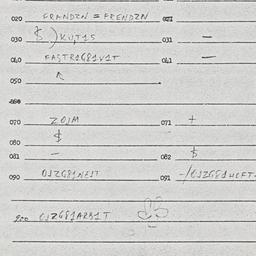 020 ERANDZN = FRENDZN 021
030 $ ) KU,T1S 031 –
040 FASTR1G81V1T 041 –
050
060
070 ZOIM 071 +
080 $
081 – 082 $
090 OJZG81NEJT 091 -/OJZG81HEFT-
OJZG81ARB1T